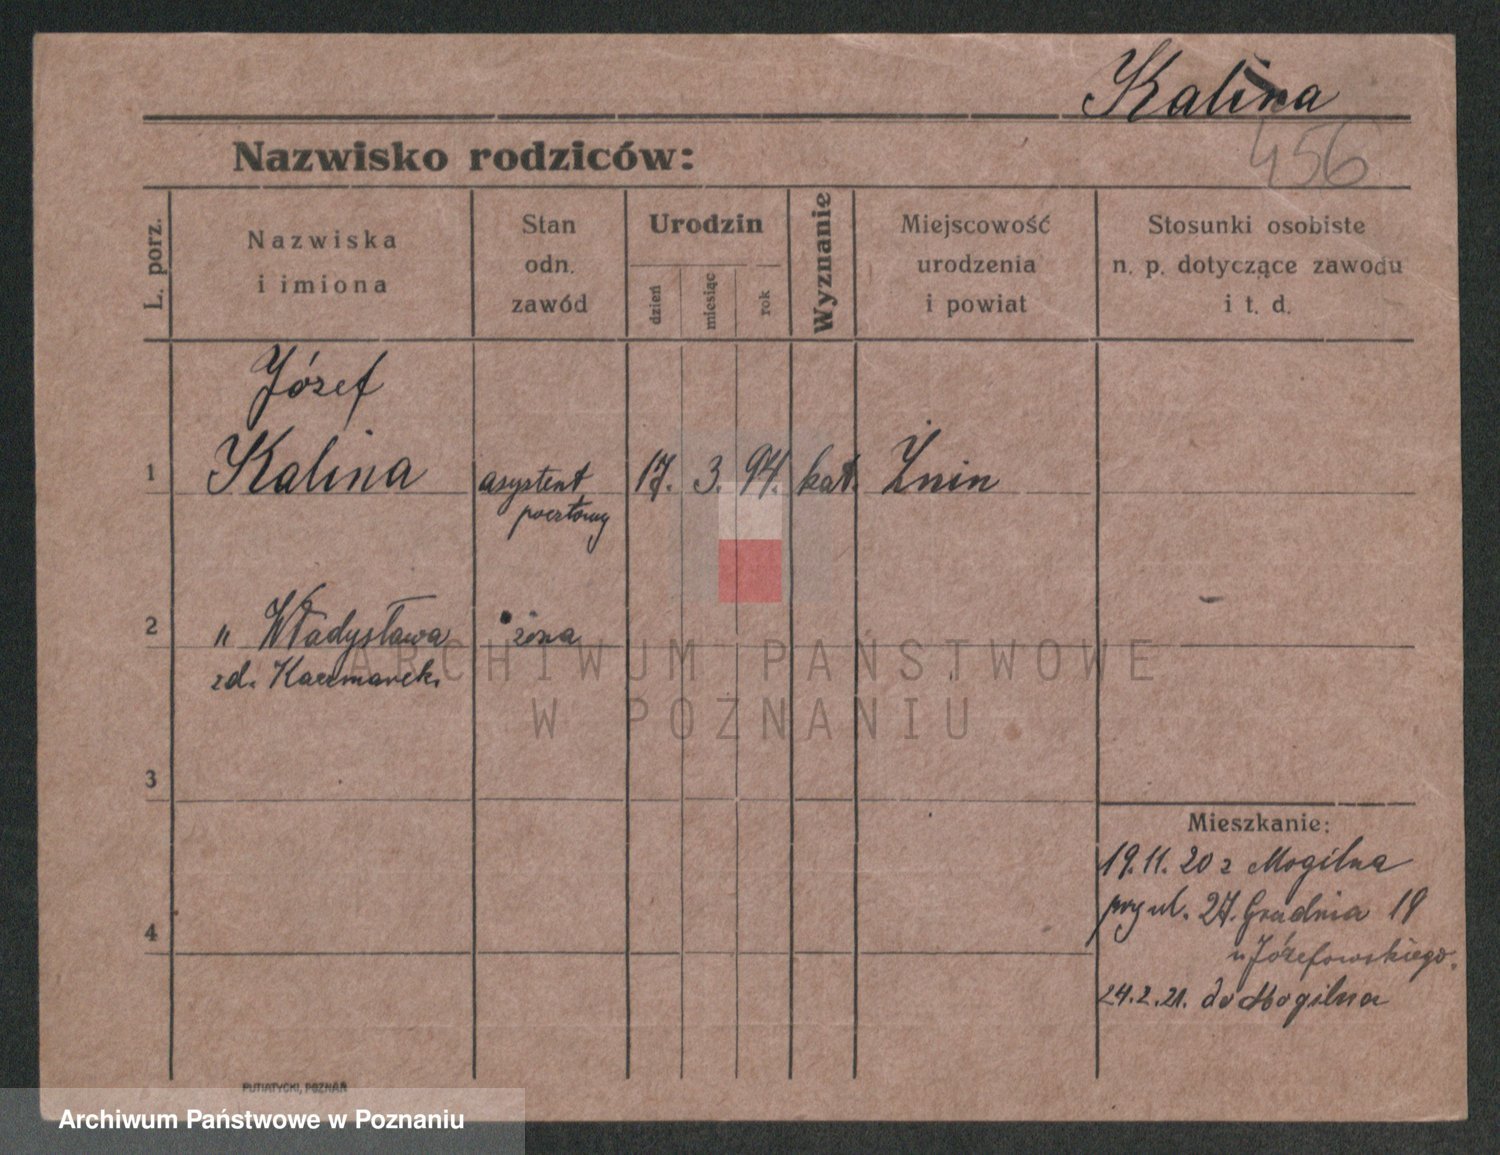 Kalina
456
Nazwisko rodziców:
L. porz.
Nazwiska
i imiona
Stan
odn.
zawód
Urodzin
dzień
miesiąc
rok
Wyznanie
Miejscowość
urodzenia
i powiat
Stosunki osobiste
n. p. dotyczące zawodu
i t. d.
Józef
1 Kalina asystent 17. 3. 94. kat. Żnin
pocztowy
2 " Władysława żona
zd. Kaczmarek.
ARCHIWUM PAŃSTWOWE
W POZNANIU
3
Mieszkanie:
19.11.20 z Mogilna
przy ul. 27. Grudnia 19
u Józefowskiego.
4
24.2.21. do Mogilna
PUTIATYCKI, POZNAŃ
Archiwum Państwowe w Poznaniu